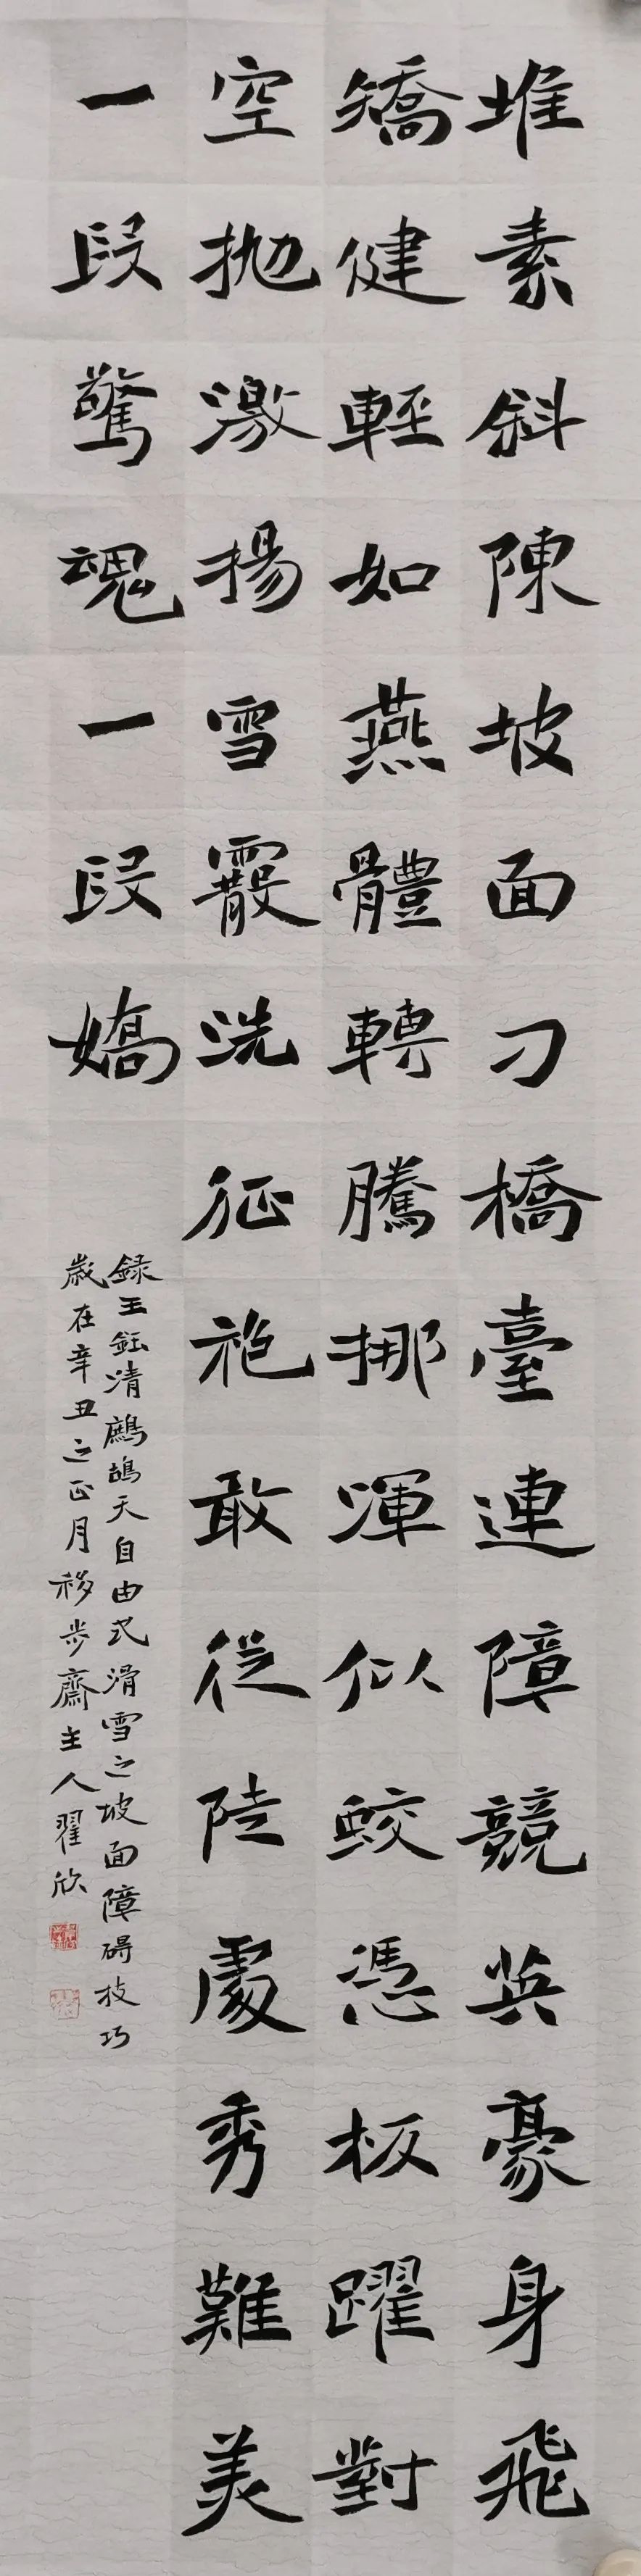 堆素斜陳坡面刁橋臺連障競英豪身飛
矯健輕如燕體轉騰挪渾似蛟憑板躍對
空拋激揚雪霰洗征袍敢從陡處秀難美
一段驚魂一段嬌
録王鈺清鷓鴣天自由式滑雪之坡面障碍技巧
歲在辛丑之正月移步齋主人翟欣